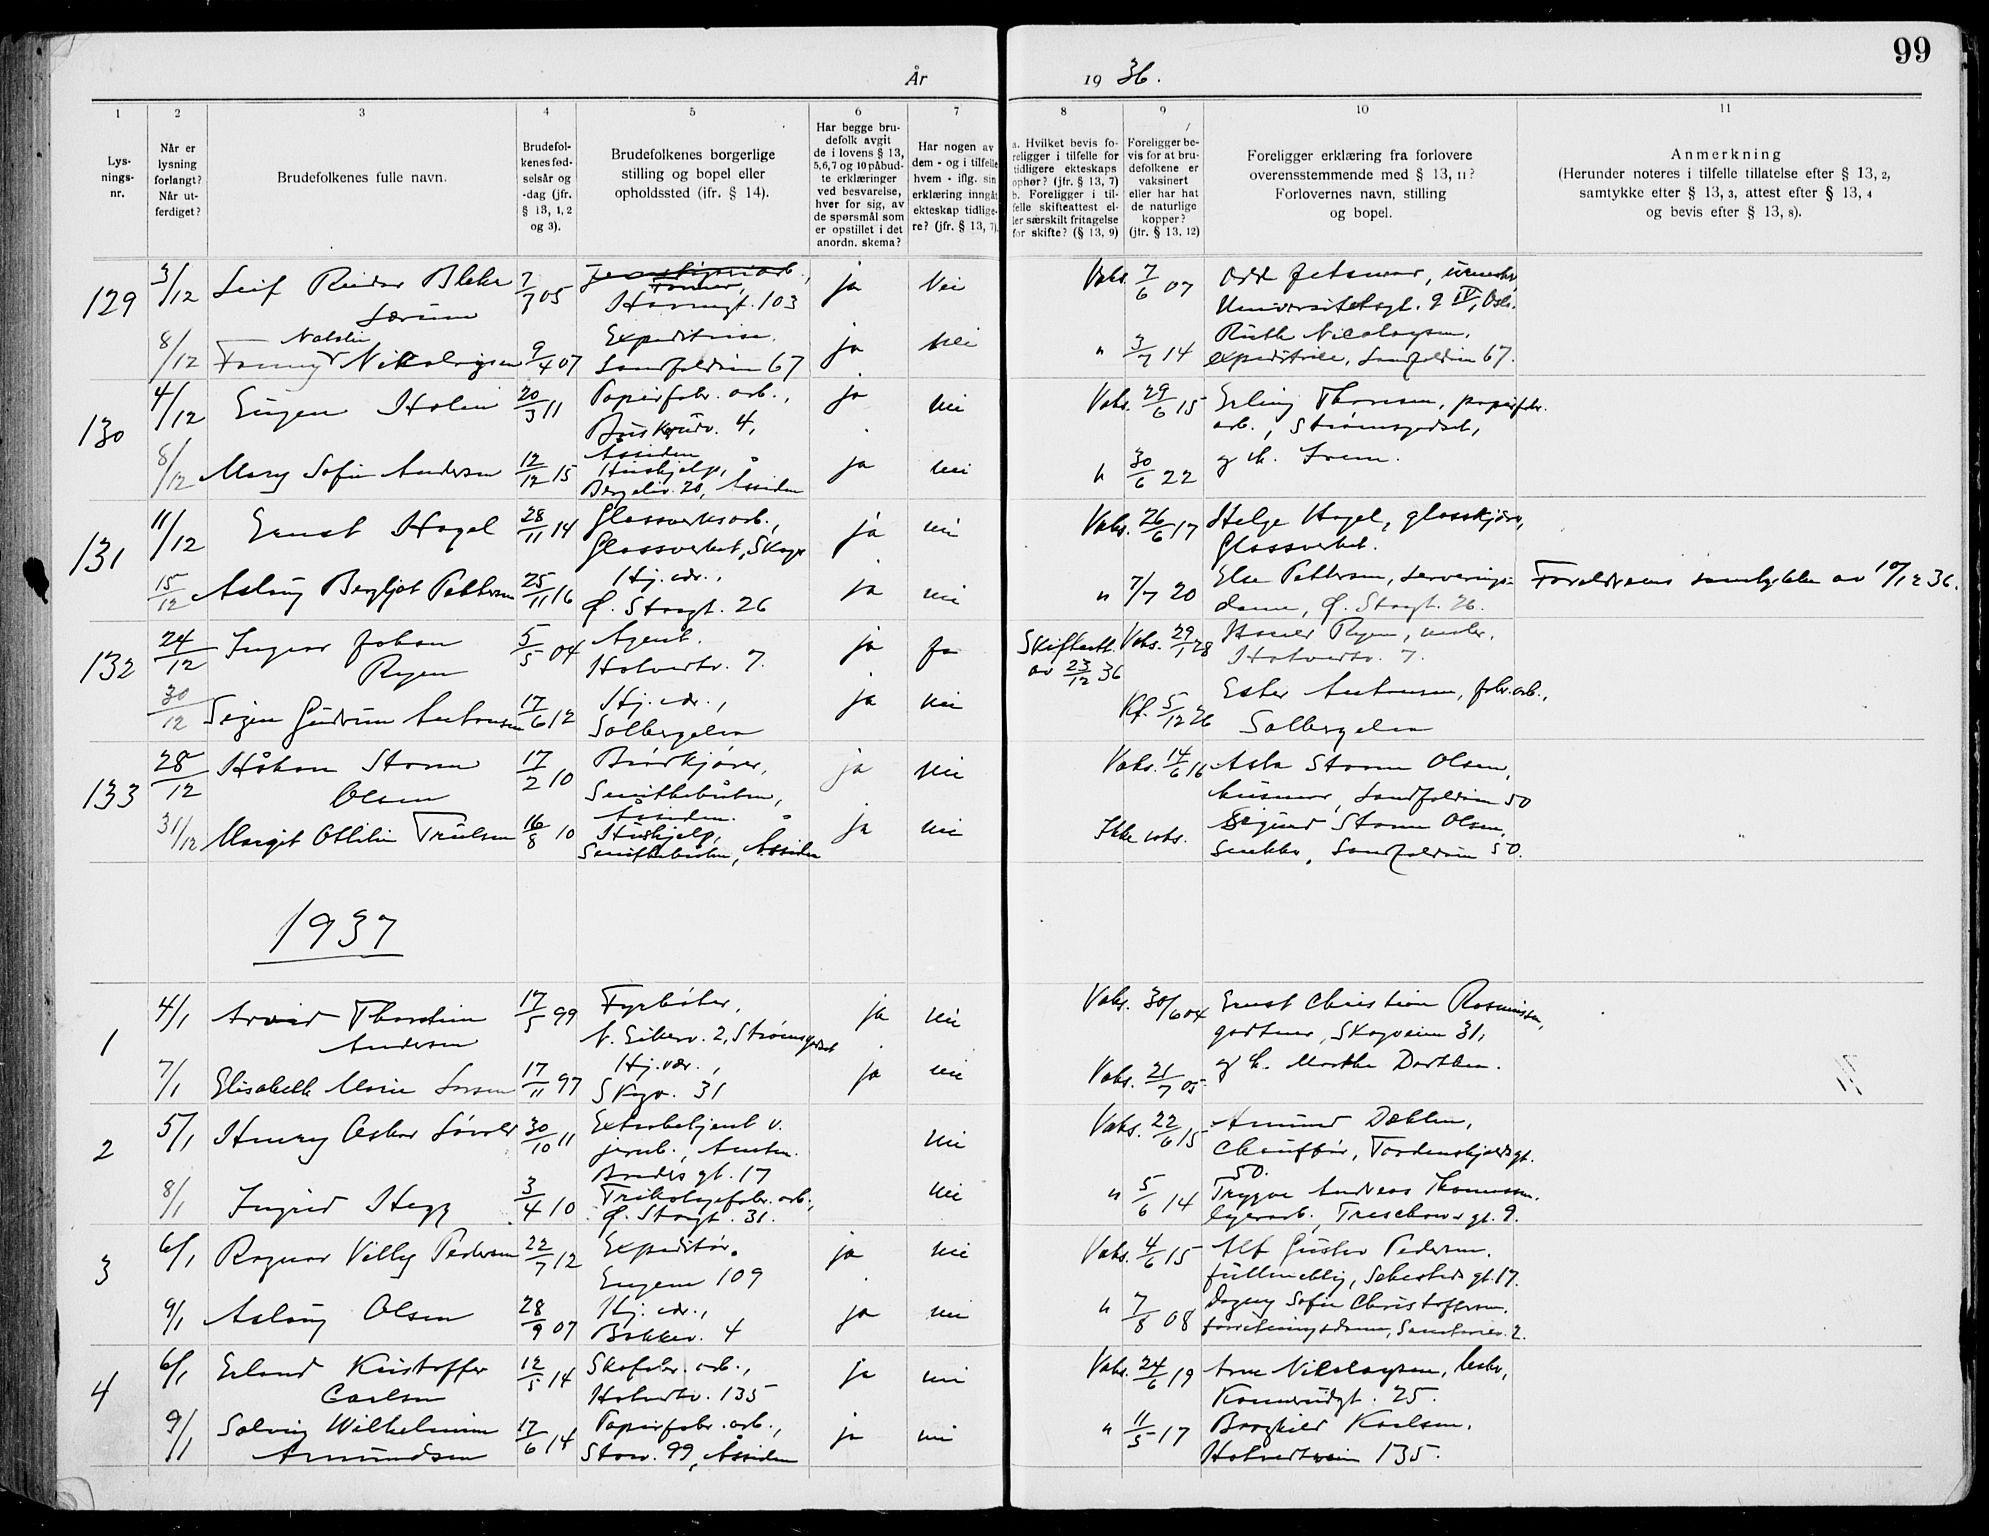 99
År 1936.
1 2 3 4 5 6 7 8 9 10 11
Lys-
nings-
nr.
Når er
lysning
forlangt?
Når ut-
ferdiget?
Brudefolkenes fulle navn.
Brudefol-
kenes fød-
selsår og
-dag (jfr.
§ 13, 1, 2
og 3).
Brudefolkenes borgerlige
stilling og bopel eller
opholdssted (ifr. § 14).
Har begge bru-
defolk avgit
de i lovens § 13,
5,6,7 og 10 påbud-
te erklæringer
ved besvarelse,
hver for sig, av
de spørsmål som
er opstillet i det
anordn. skema?
Har nogen av
dem - og i tilfelle
hvem - iflg. sin
erklæring inngått
ekteskap tidlige-
re? (jfr. § 13, 7).
a. Hvilket bevis fo-
religger i tilfelle for
tidligere ekteskaps
ophør? (jfr. § 13, 7)
b. Foreligger i til-
felle skifteattest el-
ler særskilt fritagelse
for skifte? (§ 13, 9)
Foreligger be-
vis for at bru-
defolkene er
vaksinert
eller har hat
de naturlige
kopper?
(jfr. § 13, 12)
Foreligger erklæring fra forlovere
overensstemmende med § 13, 11?
Forlovernes navn, stilling
og bopel.
Anmerkning
(Herunder noteres i tilfelle tillatelse efter § 13, 2,
samtykke efter § 13, 3, attest efter § 13, 4
og bevis efter § 13, 8).
129 3/12 Leif Reidar 7/7 05 ja Nei Vaks. 7/6 07 Odd
Havnegt. 103 Universitetsgt. 9 IV, Oslo.
8/12 Fanny Natalie Nikolaysen 9/4 07 Expeditrise. ja nei " 3/7 14 Ruth Nicolaysen,
Landfaldøen 67 expeditrise, Landfaldøen 67.
130 4/12 Eugen Holm 20/3 11 Papirfabr. arb., ja nei Vaks. 29/6 15 Erling Thoresen, papirfabr.
Buskerudv. 4, arb., Strømsgodset,
Åssiden
8/12 Mary Sofie Andersen 12/12 15 Hushjelp, ja nei " 30/6 22 og h. Irene.
20, Åssiden
131 11/12 Ernst Hagel 28/11 14 Glassverksarb., ja nei Vaks. 26/6 17 Helge Hagel, glasskjører,
Glassverket, Skoger Glassverket.
15/12 Aslaug Bergljot Pettersen 25/11 16 Hj. vær., ja nei " 7/7 20 Else Pettersen, serverings- Foreldrenes samtykke av 10/12 36.
Ø. Storgt. 26 dame, Ø. Storgt. 26.
132 24/12 Ingvar Johan 5/5 04 Agent. ja ja Skifteatt. Vaks. 29/1 28 Ryen, maler,
Ryen Hotvedtv. 7. av 23/12 36 Hotvedtv. 7.
30/12 Gudrun Antonsen 17/6 12 Hj. vær., ja nei Kf. 5/12 26 Ester Antonsen, fabr. arb.,
Solbergelva Solbergelva
133 28/12 Håkon Storm 17/2 10 Brødkjører, ja nei Vaks. 14/6 16 Asle Storm Olsen,
Olsen Smithebuten, Landfaldøen 50
Åssiden.
31/12 Margit Ottilie Trulsen 16/8 10 Hushjelp, ja nei Ikke vaks. Sigurd Storm Olsen,
Smithebuten, Åssiden snekker, Landfaldøen 50.
1937
1 4/1 Arvid Thorstein 17/5 99 Fyrbøter, ja nei Vaks. 30/6 04 Ernst Christian Rasmussen,
Andersen N. Eikerv. 2, Strømsgodset gartner, Skogveien 31,
7/1 Elisabeth Marie Larsen 17/11 97 Hj. vær., ja nei Vaks. 21/7 05 og h. Marthe Dorthea.
Skogv. 31
2 5/1 Henry Oskar 30/10 11 Extrabetjent v. nei Vaks. 22/6 15 Amund Dæhlen,
jernb., Anton Chauffør, Tordenskjoldsgt.
Andersgt. 17 50.
8/1 Ingrid Hegg 3/4 10 Trikotagefabr. arb., nei " 5/6 14 Trygve Andreas Thomassen,
Ø. Storgt. 31. lagerarb., Treschowsgt. 9.
3 6/1 Ragnar Villy Pedersen 22/7 12 Expeditør. ja nei Vaks. 4/6 15 Alf Gustav Pedersen,
Engene 109 fullmektig, Schestedsgt. 17.
9/1 Aslaug Olsen 28/9 07 Hj. vær., ja nei " 7/8 08 Dagny Sofie Christoffersen,
Bakkev. 4 forretningsdame, 2.
4 6/1 Erland Kristoffer 12/5 14 Skofabr. arb., ja nei Vaks. 24/6 19 Arne Nikolaysen,
Carlsen Hotvedtv. 135 Konnerudgt. 25.
9/1 Solveig Wilhelmine 17/6 14 Papirfabr. arb., ja nei " 11/5 17 Borghild Karlsen,
Amundsen 99, Åssiden Hotvedtveien 135.